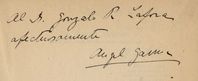 Al Dr. Gonzalo R. Lafora
afectuosamente
Angel Garma